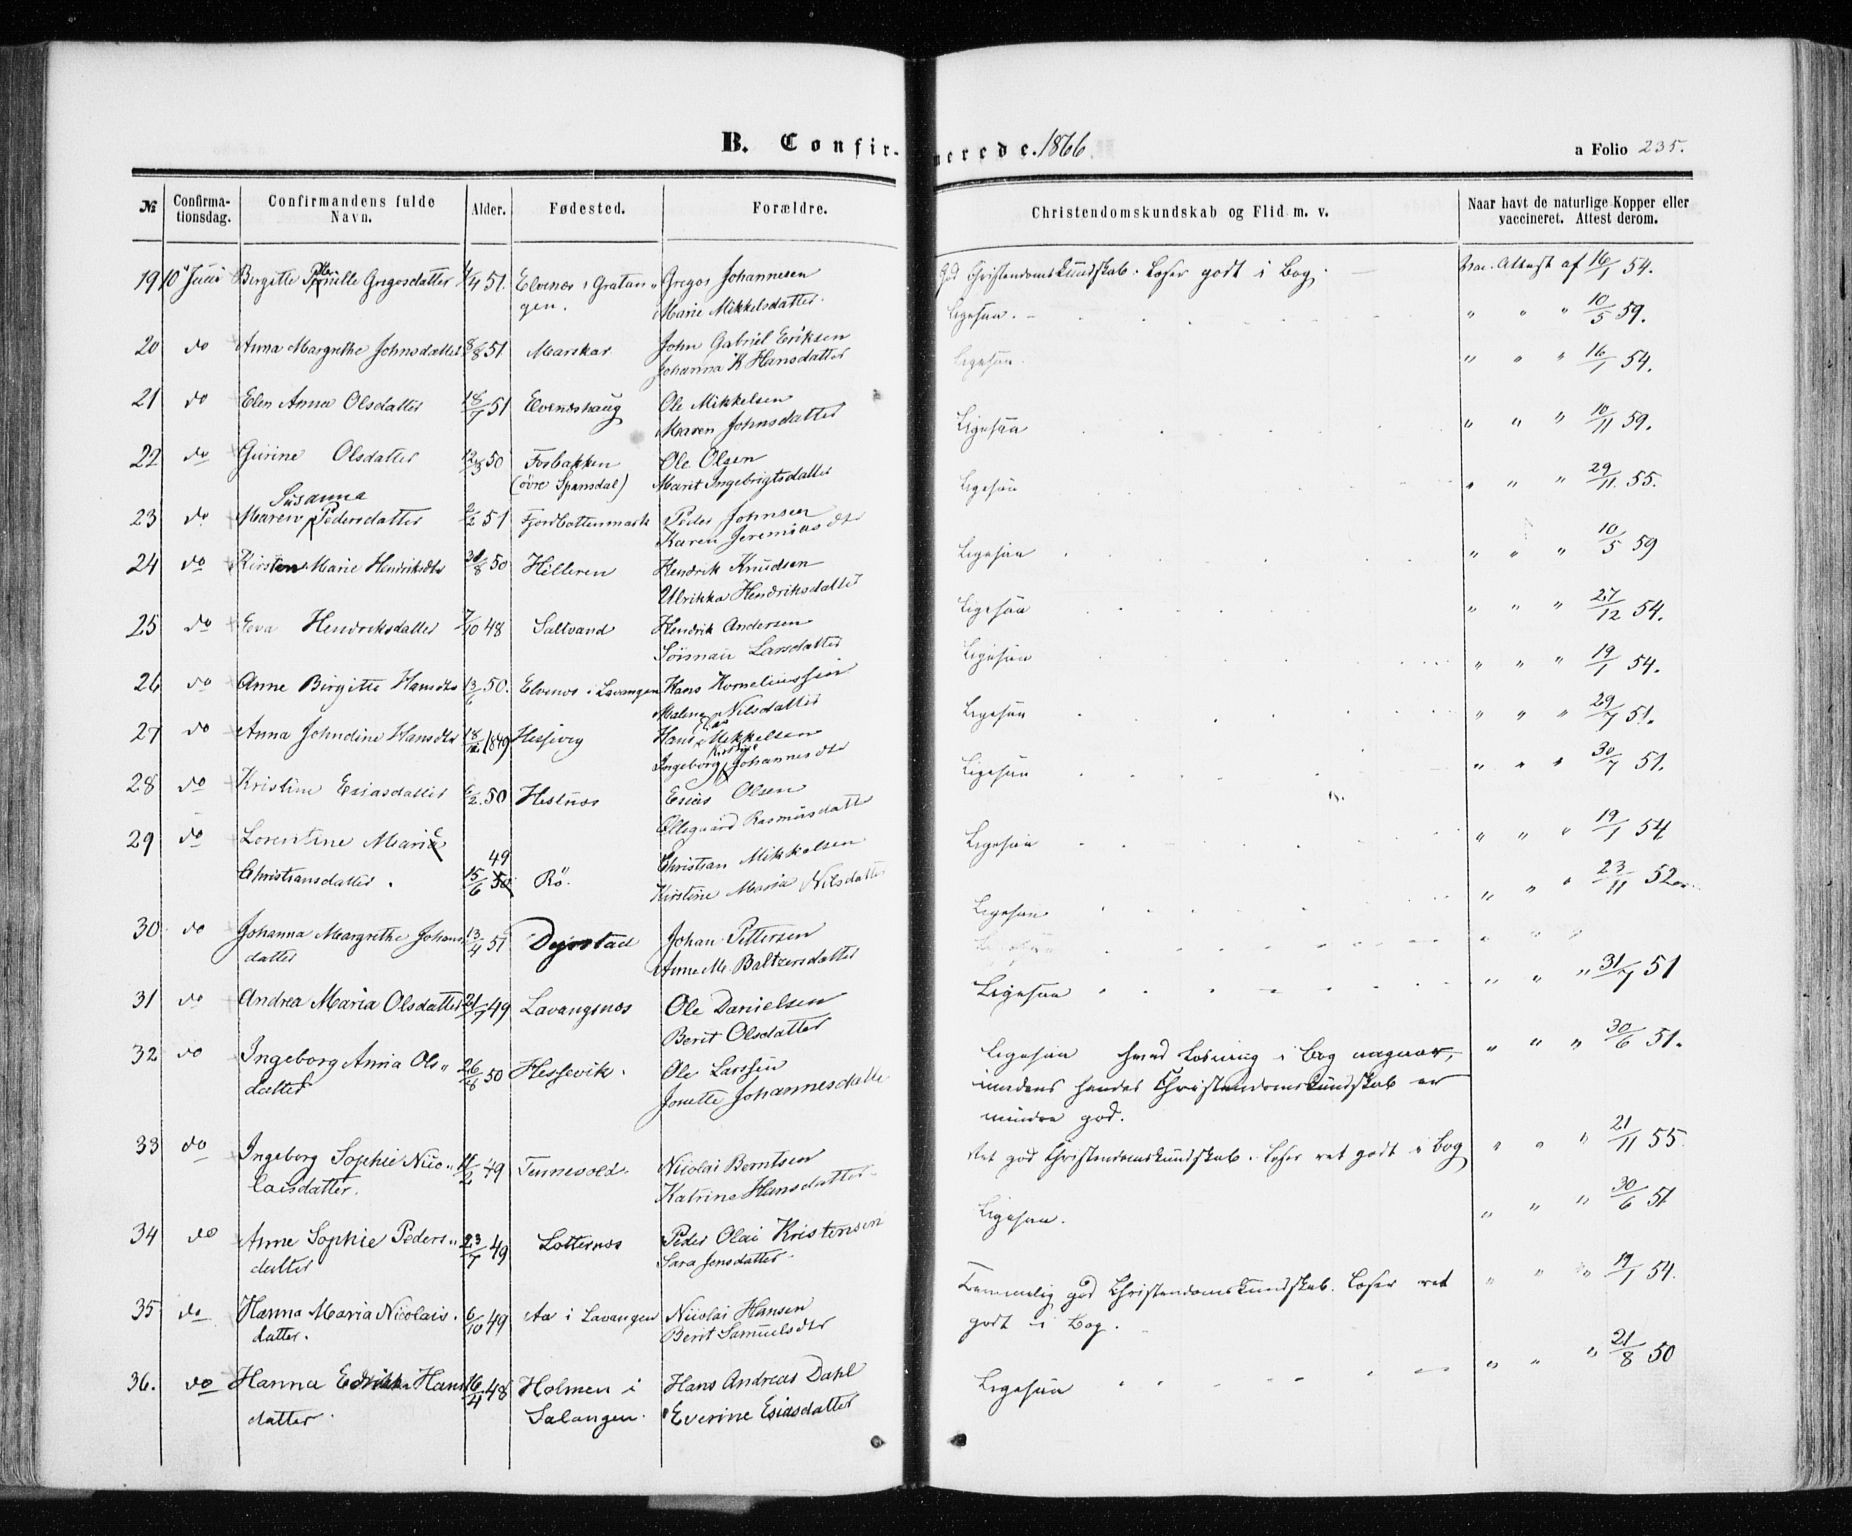 B. Confir-
merede. 1866
a Folio 235.
№ Confirma-tionsdag. Confirmandens fulde Navn. Alder. Fødested. Forældre.
Christendomskundskab og Flid m. v. Naar havt de naturlige Kopper eller vaccineret. Attest derom.
19 10 Juni Birgitte Gregosdatter 51. Elvenes i Gratan- Gregos Johannesen
gen. Marie Mikkelsdatter.
God Christendomskundskab. Læser godt i Bog. Vac. Attest af 16/1 54.
20 do Anna Margrethe Johnsdatter 8/8 51 Marskar John Gabriel Eriksen
Johanna K Hansdatter
Ligesaa. " " " 10/5 59.
21 do Elen Anna Olsdatter 18/7 51 Elvenæshaug Ole Mikkelsen
Maren Johnsdatter
Ligesaa. " " " 16/1 54.
22 do Gurine Olsdatter 50 Fosbakken Ole Olsen
(øvre Spansdal) Marit Ingebrigtsdatter
Ligesaa " " " 10/11 59.
Susanna
23 do Maren Pedersdatter 51 Fjordbottenmark Peder Johnsen
Karen Jeremiasdtr
Ligesaa " " " 29/11. 55.
24 do Kirsten Marie Henriksdtr 31/8 50 Hilleren Hendrik Knudsen
Ulrikka Hendriksdatter
Ligesaa " " " 10/5 59
25 do Eva Hendriksdatter 7/10 48 Saltvand Hendrik Andersen
Larsdatter
Ligesaa " " " 27/12 54.
26 do Anne Birgitte Hansdtr 13/6 50. Elvenes i Lavangen Hans Korneliussen
Malena Nilsdatter
Ligesaa " " " 19/1 54.
27 do Anna Johndine Hansdtr (1849) Hessevig Hans Mikkelsen
Ingeborg Kirstine Johannesdtr
Ligesaa " " " 29/7 51.
28 do Kristine Esiasdatter 6/2. 50 Hestnes Esias Olsen
Ollegaard Rasmusdatter
Ligesaa " " " 30/7 51.
29 do Lorentine Marie
Christiansdatter. 15/6 49 50 Rø. Christian Mikkelsen
Kirstine Maria Nilsdatter
Ligesaa " " " 19/1 54
30 do Johanna Margrethe Johans 13/4 51 Dyrstad Johan Pettersen
datter Anne M. Baltzersdatter
Ligesaa " " " 23/11 52
Ligesaa " " "
31 do Andrea Maria Olsdatter 21/7 49 Lavangsnes Ole Danielsen
Berit Olsdatter
Ligesaa " " " 31/7 51
32 do Ingeborg Anna Ols" 26/8 50 Hessevik. Ole Larssen
datter Jonette Johannesdatter
Ligesaa hvad Læsning i Bog angaaer,
medens hendes Christendomskundskab er
mindre god. " " " 30/6 51.
33 do Ingeborg Sophie Nico" 11/2 49 Tennevold. Nicolai Berntsen
laisdatter. Katrine Hansdatter
Ret god Christendomskundskab. Læser ret godt i Bog " " " 21/11 55.
34 do Anne Sophie Peders" 23/7 49 Lotternes Peder Olai Kristensen
datter Sara Jensdatter.
Ligesaa. " " " 30/6 51
35 do Hanna Maria Nicolais. 6/10 49 Aa i Lavangen Nicolai Hansen
datter. Berit Samuelsdtr
Temmelig god Christendomskundskab. Læser ret
godt i Bog. " " " 19/1 54.
36. do Hanna Hans 16/4 48 Holmen i Hans Andreas Dahl
datter. Salangen. Everine Esiasdatter
Ligesaa " " " 21/8 50